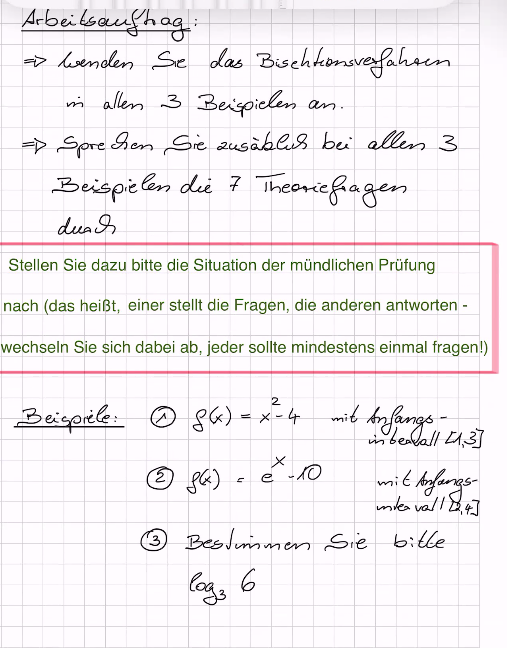 Arbeitsauftrag:
=> Wenden Sie das Bisektionsverfahren
in allen 3 Beispielen an.
=> Sprechen Sie zusätzlich bei allen 3
Beispielen die 7 Theoriefragen
durch
Stellen Sie dazu bitte die Situation der mündlichen Prüfung
nach (das heißt, einer stellt die Fragen, die anderen antworten -
wechseln Sie sich dabei ab, jeder sollte mindestens einmal fragen!)
Beispiele: ① f(x) = x² - 4 mit Anfangs-
intervall [1,3]
② f(x) = eˣ - 10 mit Anfangs-
intervall [2,4]
③ Bestimmen Sie bitte
log₃ 6